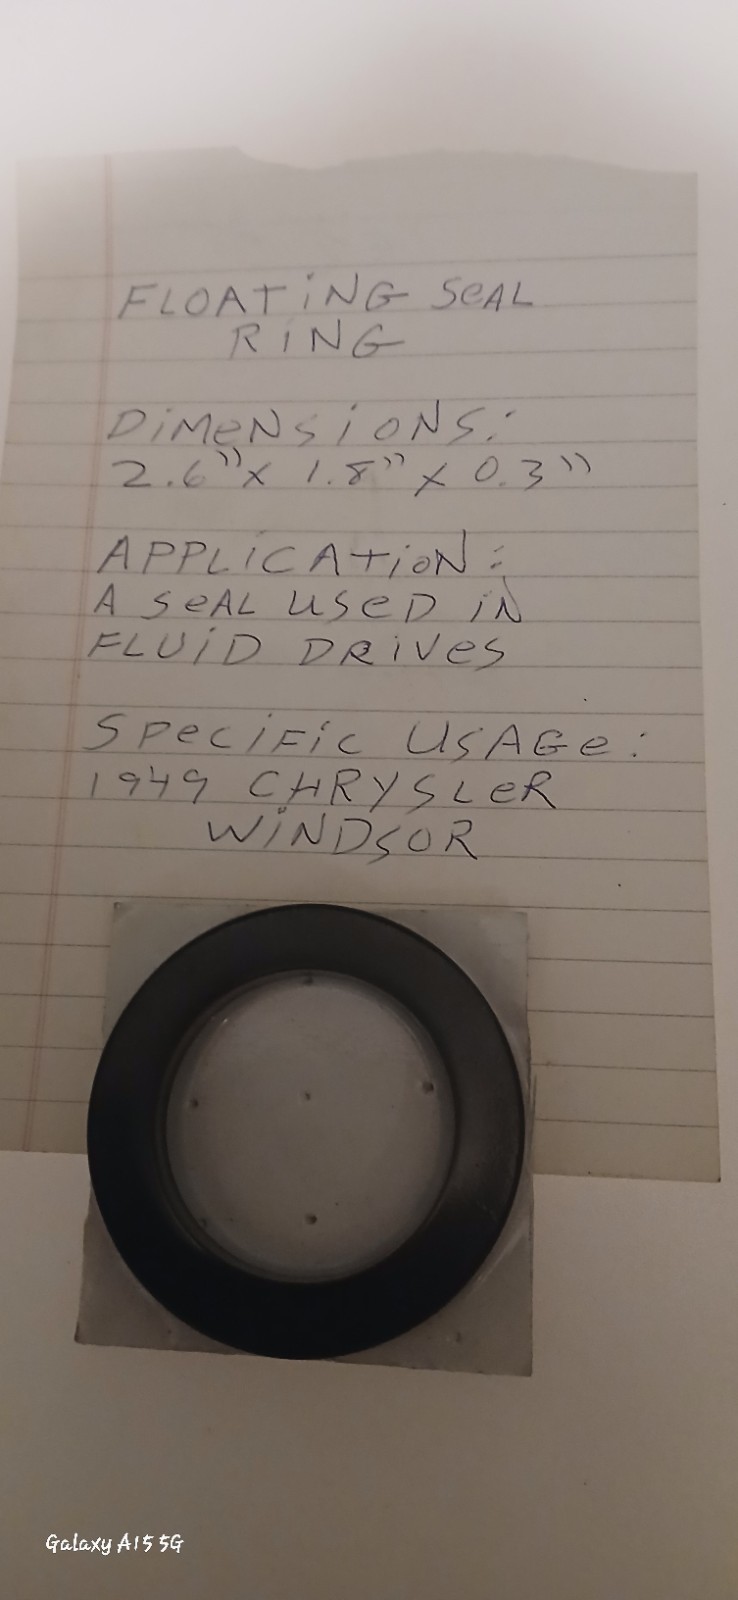 FLOATiNG SeAL
RiNG
DiMeNSiONS:
2.6" x 1.8" x 0.3"
APPLiCATiON:
A SeAL USeD iN
FLUiD DRiVeS
SPeCiFiC USAGe:
1949 CHRYSLeR
WiNDSOR
Galaxy A15 5G